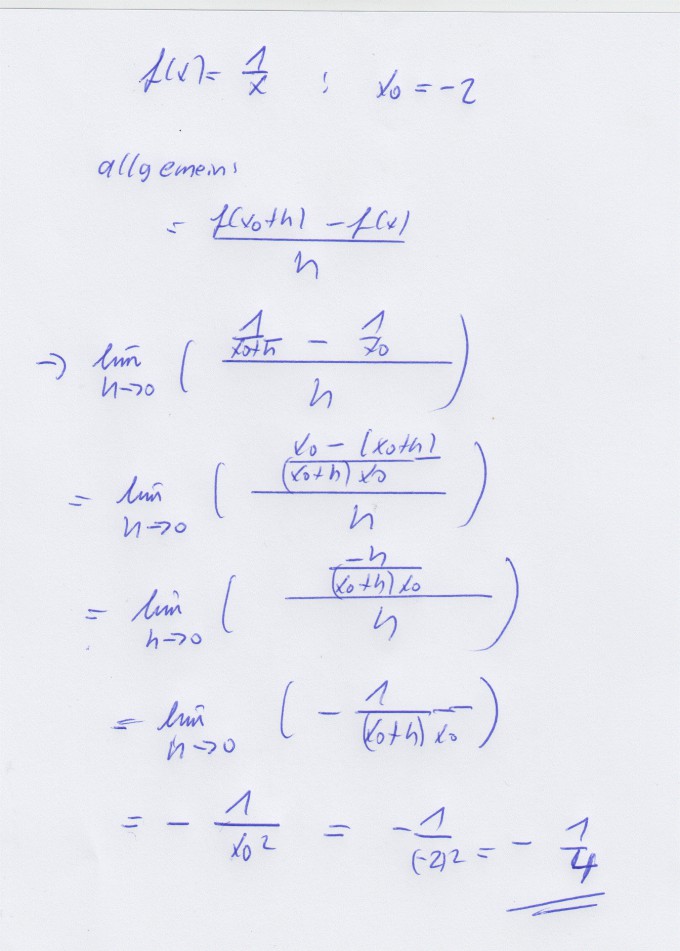 f(x) = 1/x ; x₀ = -2
allgemein:
= (f(x₀+h) - f(x))/h
→ lim h→0 ( (1/(x₀+h) - 1/x₀)/h )
= lim h→0 ( ((x₀ - (x₀+h))/((x₀+h) x₀))/h )
= lim h→0 ( (-h/((x₀+h) x₀))/h )
= lim h→0 ( - 1/((x₀+h) x₀) )
= - 1/x₀² = - 1/(-2)² = - 1/4